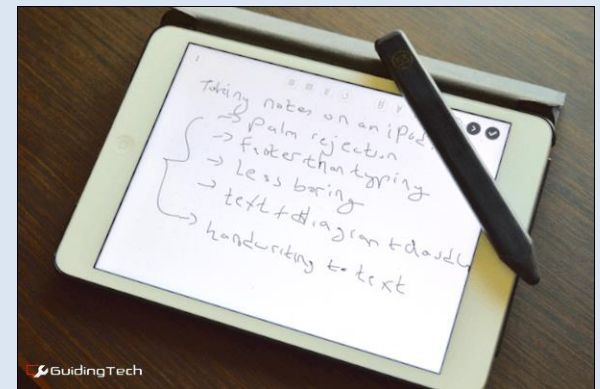 Taking notes on an iPad
→ Palm rejection
→ faster than typing
→ Less boring
→ text + diagram +
→ handwriting to text
GuidingTech